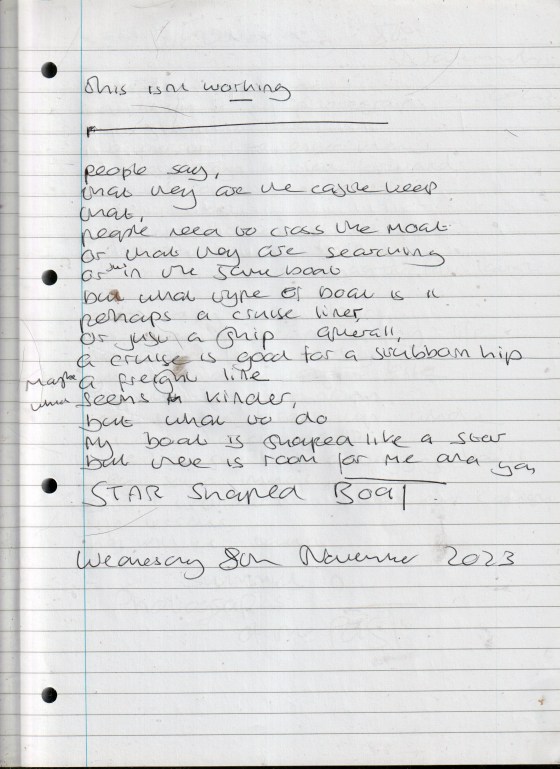 This isnt working
people say,
that they are the castle keep
that,
people need to cross the Moat
or that they are searching
or in the same boat
but what type of boat is it
perhaps a cruise liner
or just a ship overall,
a cruise is good for a stubborn hip
Maybe a freight line
what seems kinder,
but what to do
My boat is shaped like a star
but there is room for me and you
STAR Shaped Boat.
Wednesday 8th November 2023